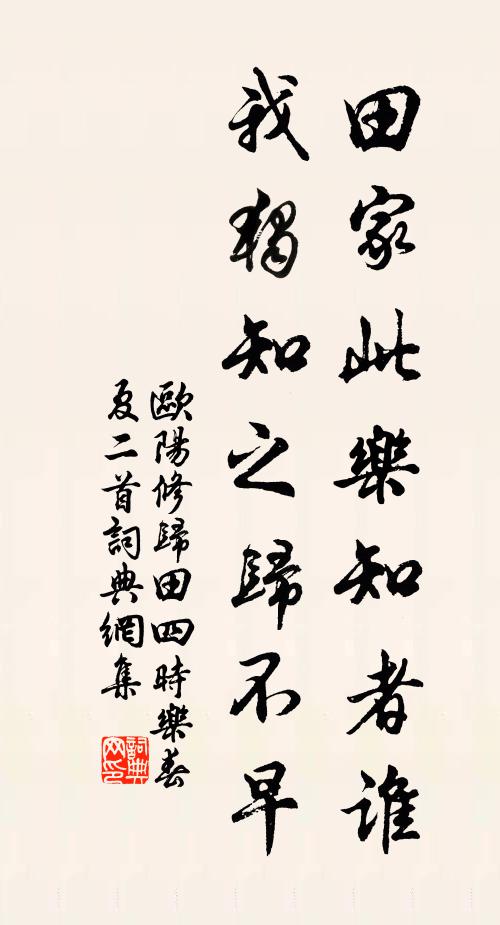 田家此樂知者誰
我獨知之歸不早
歐陽修歸田四時樂春
夏二首詞典網集
詞典
网印